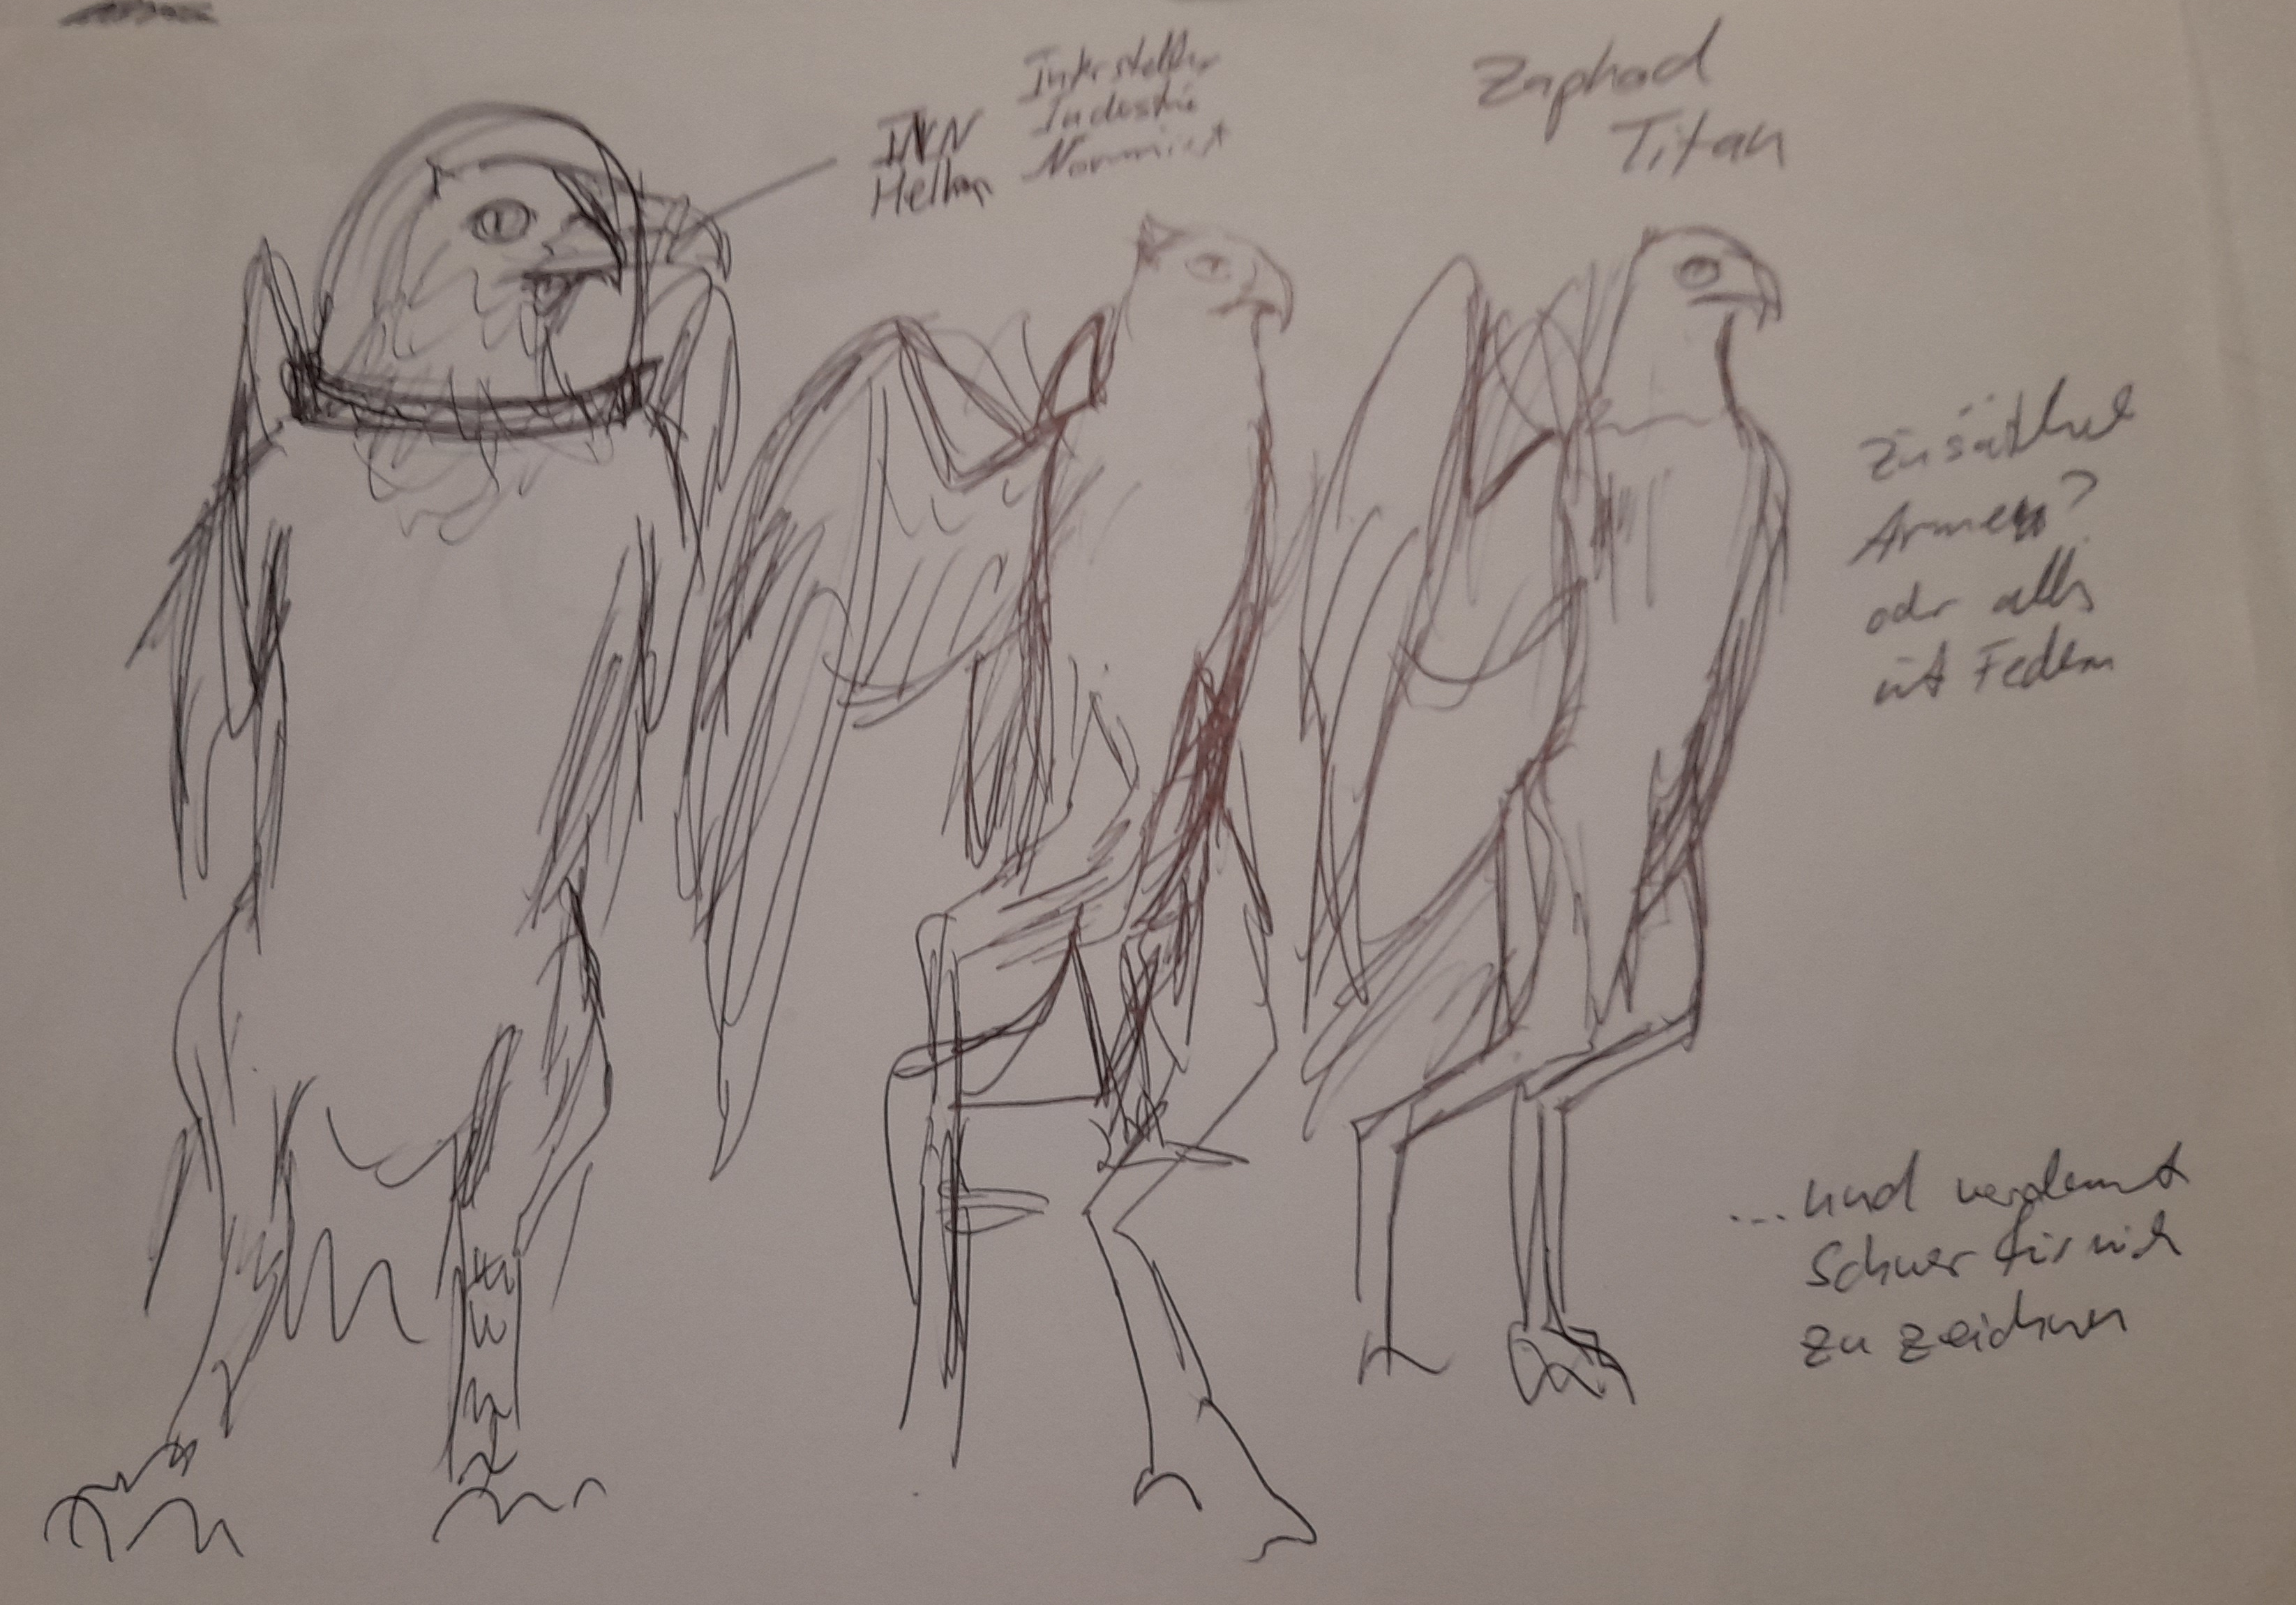 INN
Helm
Interstellar
Industrie
Normiert
Zaphod
Titan
Zusätzliche
Arme?
oder alles
mit Federn
... und verdammt
Schwer für mich
zu zeichnen